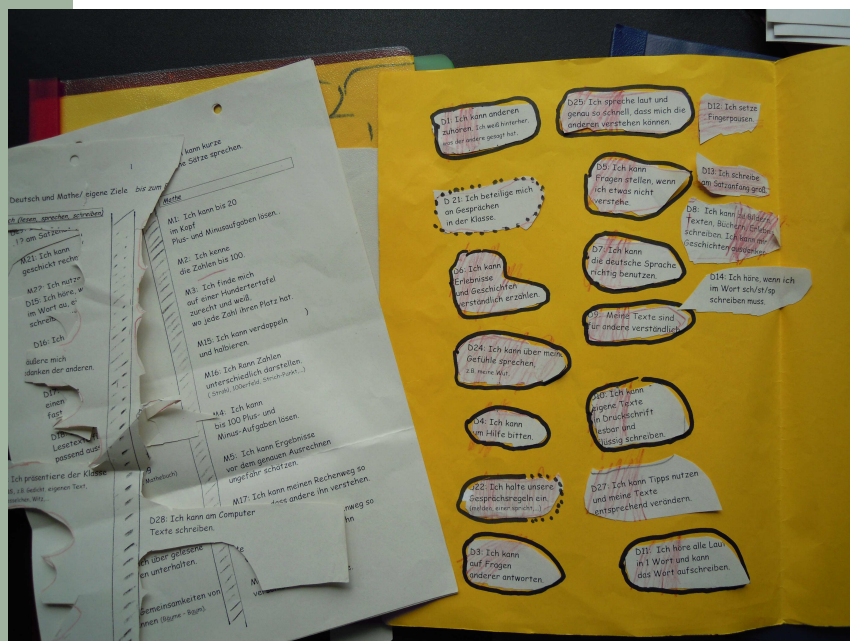 kann kurze
Sätze sprechen.
Deutsch und Mathe/ eigene Ziele bis zum
(lesen, sprechen, schreiben)
Mathe
M1: Ich kann bis 20
im Kopf
Plus- und Minusaufgaben lösen.
M2: Ich kenne
die Zahlen bis 100.
M3: Ich finde mich
auf einer Hundertertafel
zurecht und weiß,
wo jede Zahl ihren Platz hat.
M15: Ich kann verdoppeln
und halbieren.
M16: Ich kann Zahlen
unterschiedlich darstellen.
( Strahl, 100erfeld, Strich-Punkt,...)
M4: Ich kann
bis 100 Plus- und
Minus-Aufgaben lösen.
M5: Ich kann Ergebnisse
vor dem genauen Ausrechnen
ungefähr schätzen.
M17: Ich kann meinen Rechenweg so
dass andere ihn verstehen.
M21: Ich kann
geschickt
D15: Ich höre,
im Wort
D16: Ich
äußere mich
der anderen.
einen
fast
passend
Ich präsentiere der Klasse
z.B. Gedicht, eigenen Text,
Witz...
Mathebuch)
D28: Ich kann am Computer
Texte schreiben.
über gelesene
unterhalten.
Gemeinsamkeiten von
D1: Ich kann anderen
zuhören. Ich weiß hinterher,
was der andere gesagt hat.
D 21: Ich beteilige mich
an Gesprächen
in der Klasse.
D6: Ich kann
Erlebnisse
und Geschichten
verständlich erzählen.
D24: Ich kann über meine
Gefühle sprechen,
z.B. meine Wut.
D4: Ich kann
um Hilfe bitten.
D22: Ich halte unsere
Gesprächsregeln ein.
(melden, einer spricht,...)
D3: Ich kann
auf Fragen
anderer antworten.
D25: Ich spreche laut und
genau so schnell, dass mich die
anderen verstehen können.
D5: Ich kann
Fragen stellen, wenn
ich etwas nicht
verstehe.
D7: Ich kann
die deutsche Sprache
richtig benutzen.
D9: Meine Texte sind
für andere verständlich.
D10: Ich kann
eigene Texte
in Druckschrift
lesbar und
flüssig schreiben.
D27: Ich kann Tipps nutzen
und meine Texte
entsprechend verändern.
D11: Ich höre alle Laute
in 1 Wort und kann
das Wort aufschreiben.
D12: Ich setze
Fingerpausen.
D13: Ich schreibe
am Satzanfang groß.
D8: Ich kann zu Bildern,
Texten, Büchern,
schreiben. Ich kann mir
Geschichten ausdenken.
D14: Ich höre, wenn ich
im Wort sch/st/sp
schreiben muss.